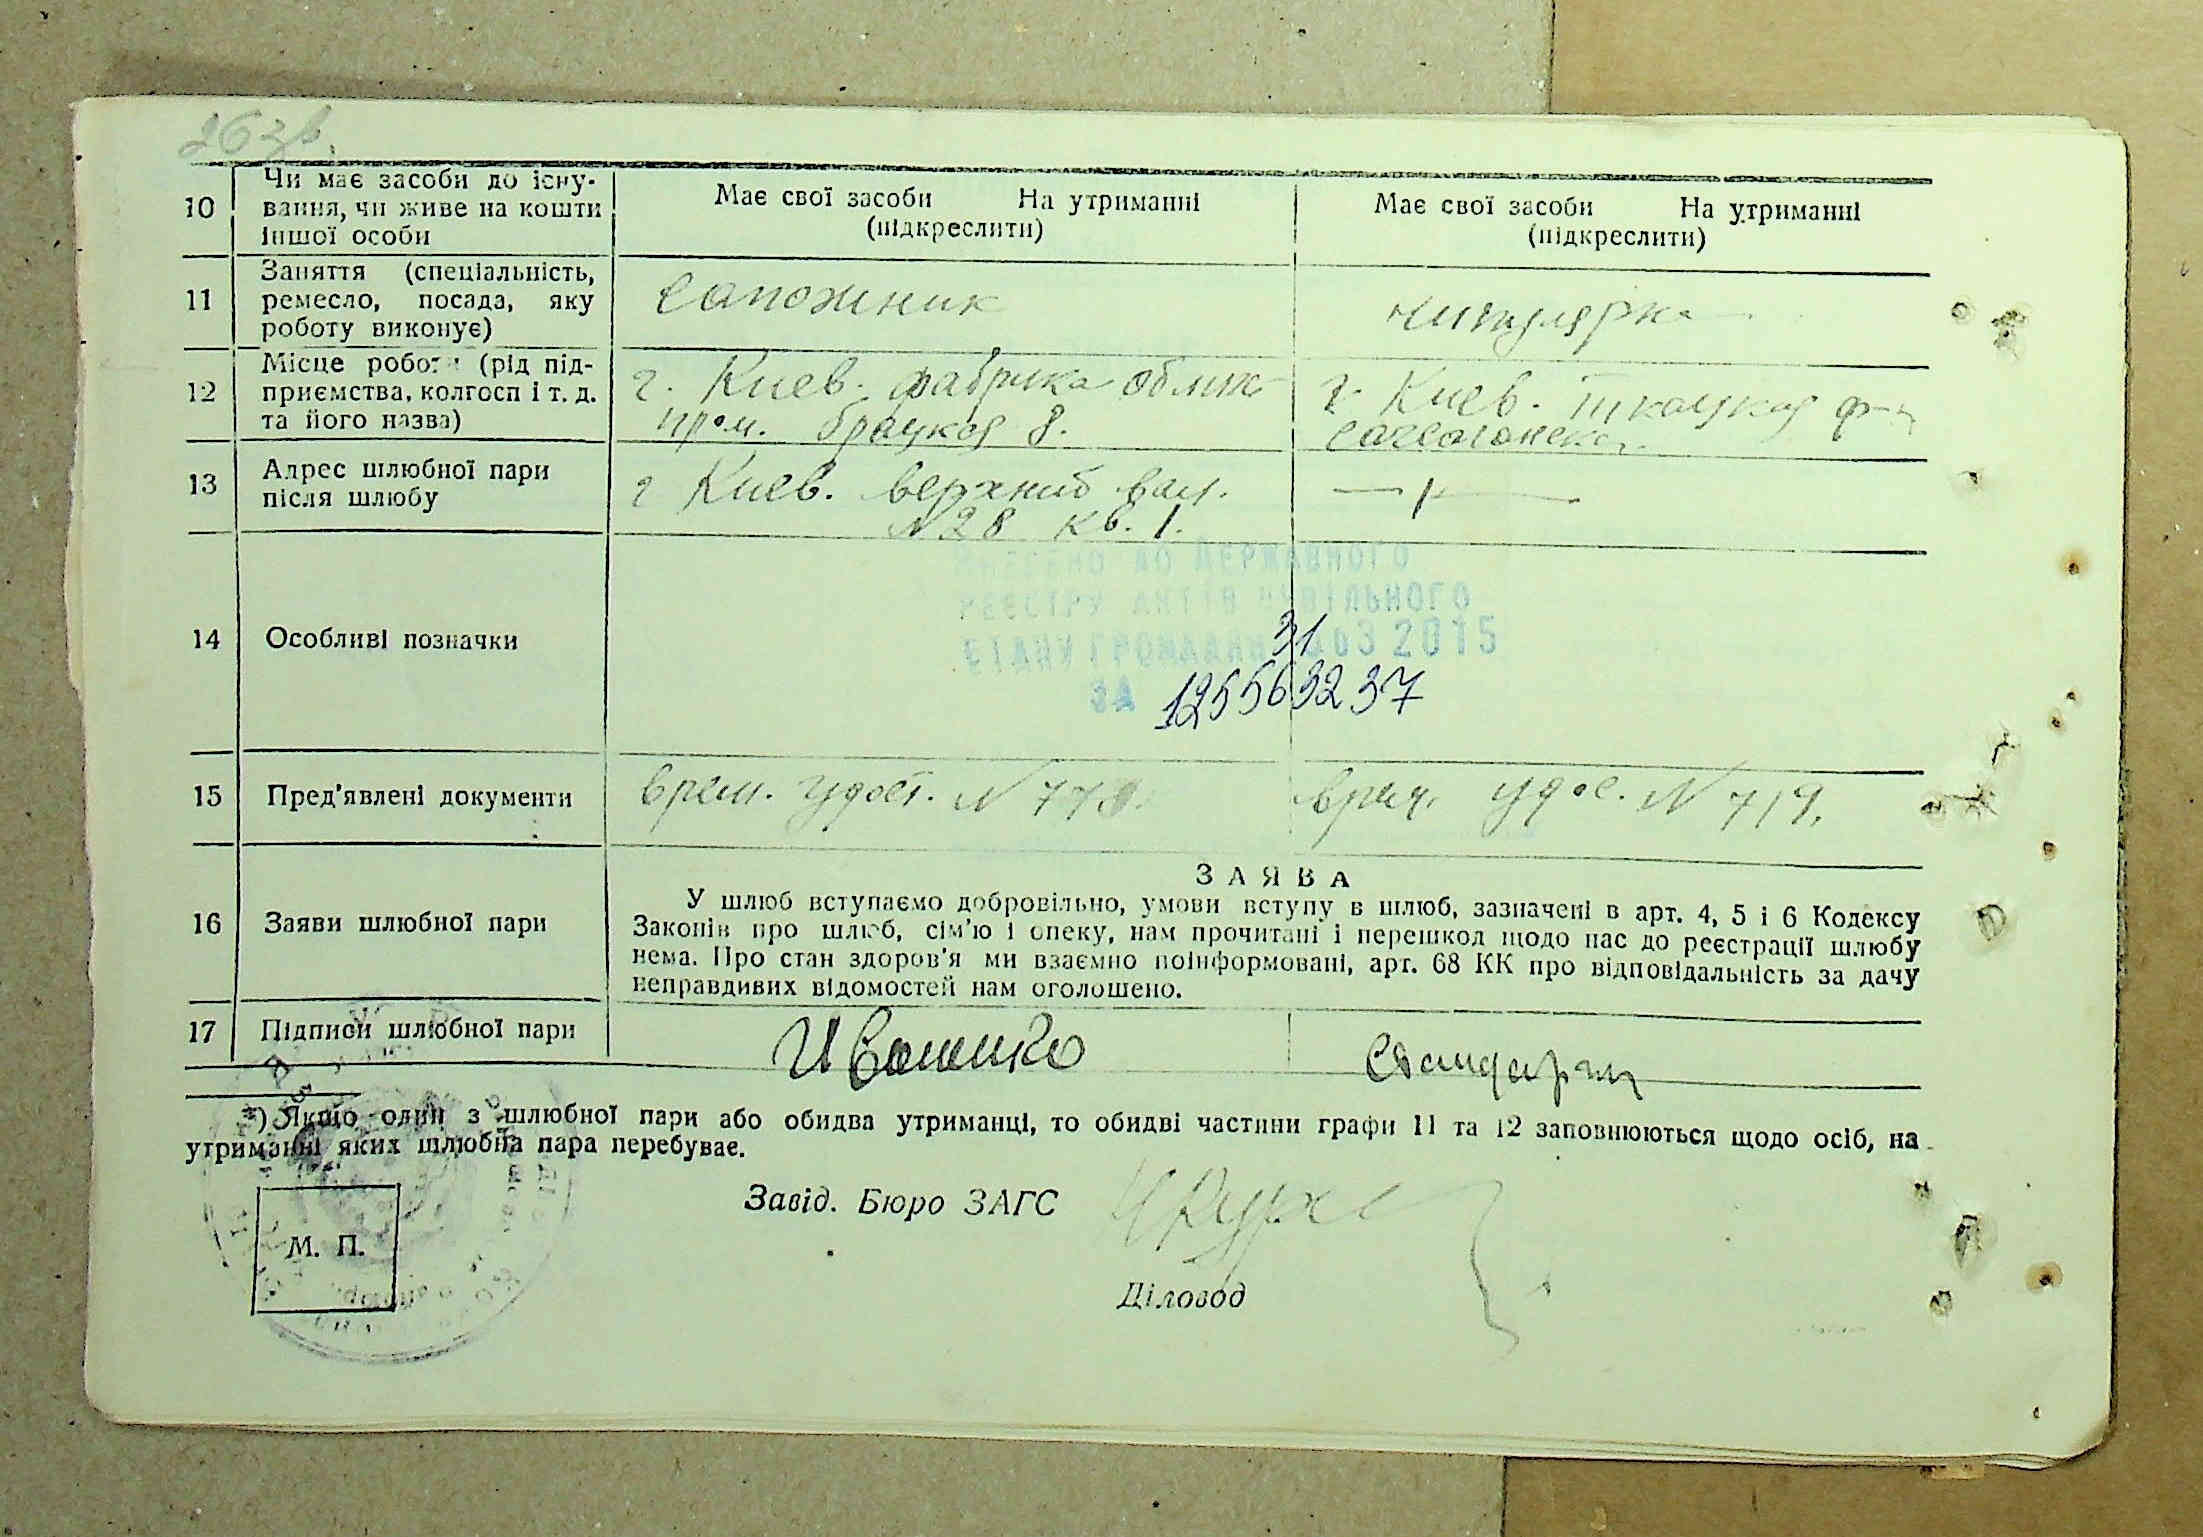 26зв.
10 Чи має засоби до існу-
вання, чи живе на кошти
іншої особи
Має свої засоби На утриманні
(підкреслити)
Має свої засоби На утриманні
(підкреслити)
11 Заняття (спеціальність,
ремесло, посада, яку
роботу виконує)
сапожник
12 Місце роботи (рід під-
приємства, колгосп і т. д.
та його назва)
г. Киев. фабрика облик
пром. 8.
г. Киев. ткацкая ф-
13 Адрес шлюбної пари
після шлюбу
г Киев. верхний вал.
N 28 кв. 1.
— " —
14 Особливі позначки
ВНЕСЕНО ДО ДЕРЖАВНОГО
РЕЄСТРУ АКТІВ ЦИВІЛЬНОГО
СТАНУ ГРОМАДЯН 31 03 2015
ЗА 125563237
15 Пред'явлені документи
врем. удост. N 770.
врем. удос. N 719.
16 Заяви шлюбної пари
ЗАЯВА
У шлюб вступаємо добровільно, умови вступу в шлюб, зазначені в арт. 4, 5 і 6 Кодексу
Законів про шлюб, сім'ю і опеку, нам прочитані і перешкод щодо нас до реєстрації шлюбу
нема. Про стан здоров'я ми взаємно поінформовані, арт. 68 КК про відповідальність за дачу
неправдивих відомостей нам оголошено.
17 Підписи шлюбної пари
*) Якщо один з шлюбної пари або обидва утриманці, то обидві частини графи 11 та 12 заповнюються щодо осіб, на
утриманні яких шлюбна пара перебуває.
Завід. Бюро ЗАГС
М. П.
Діловод